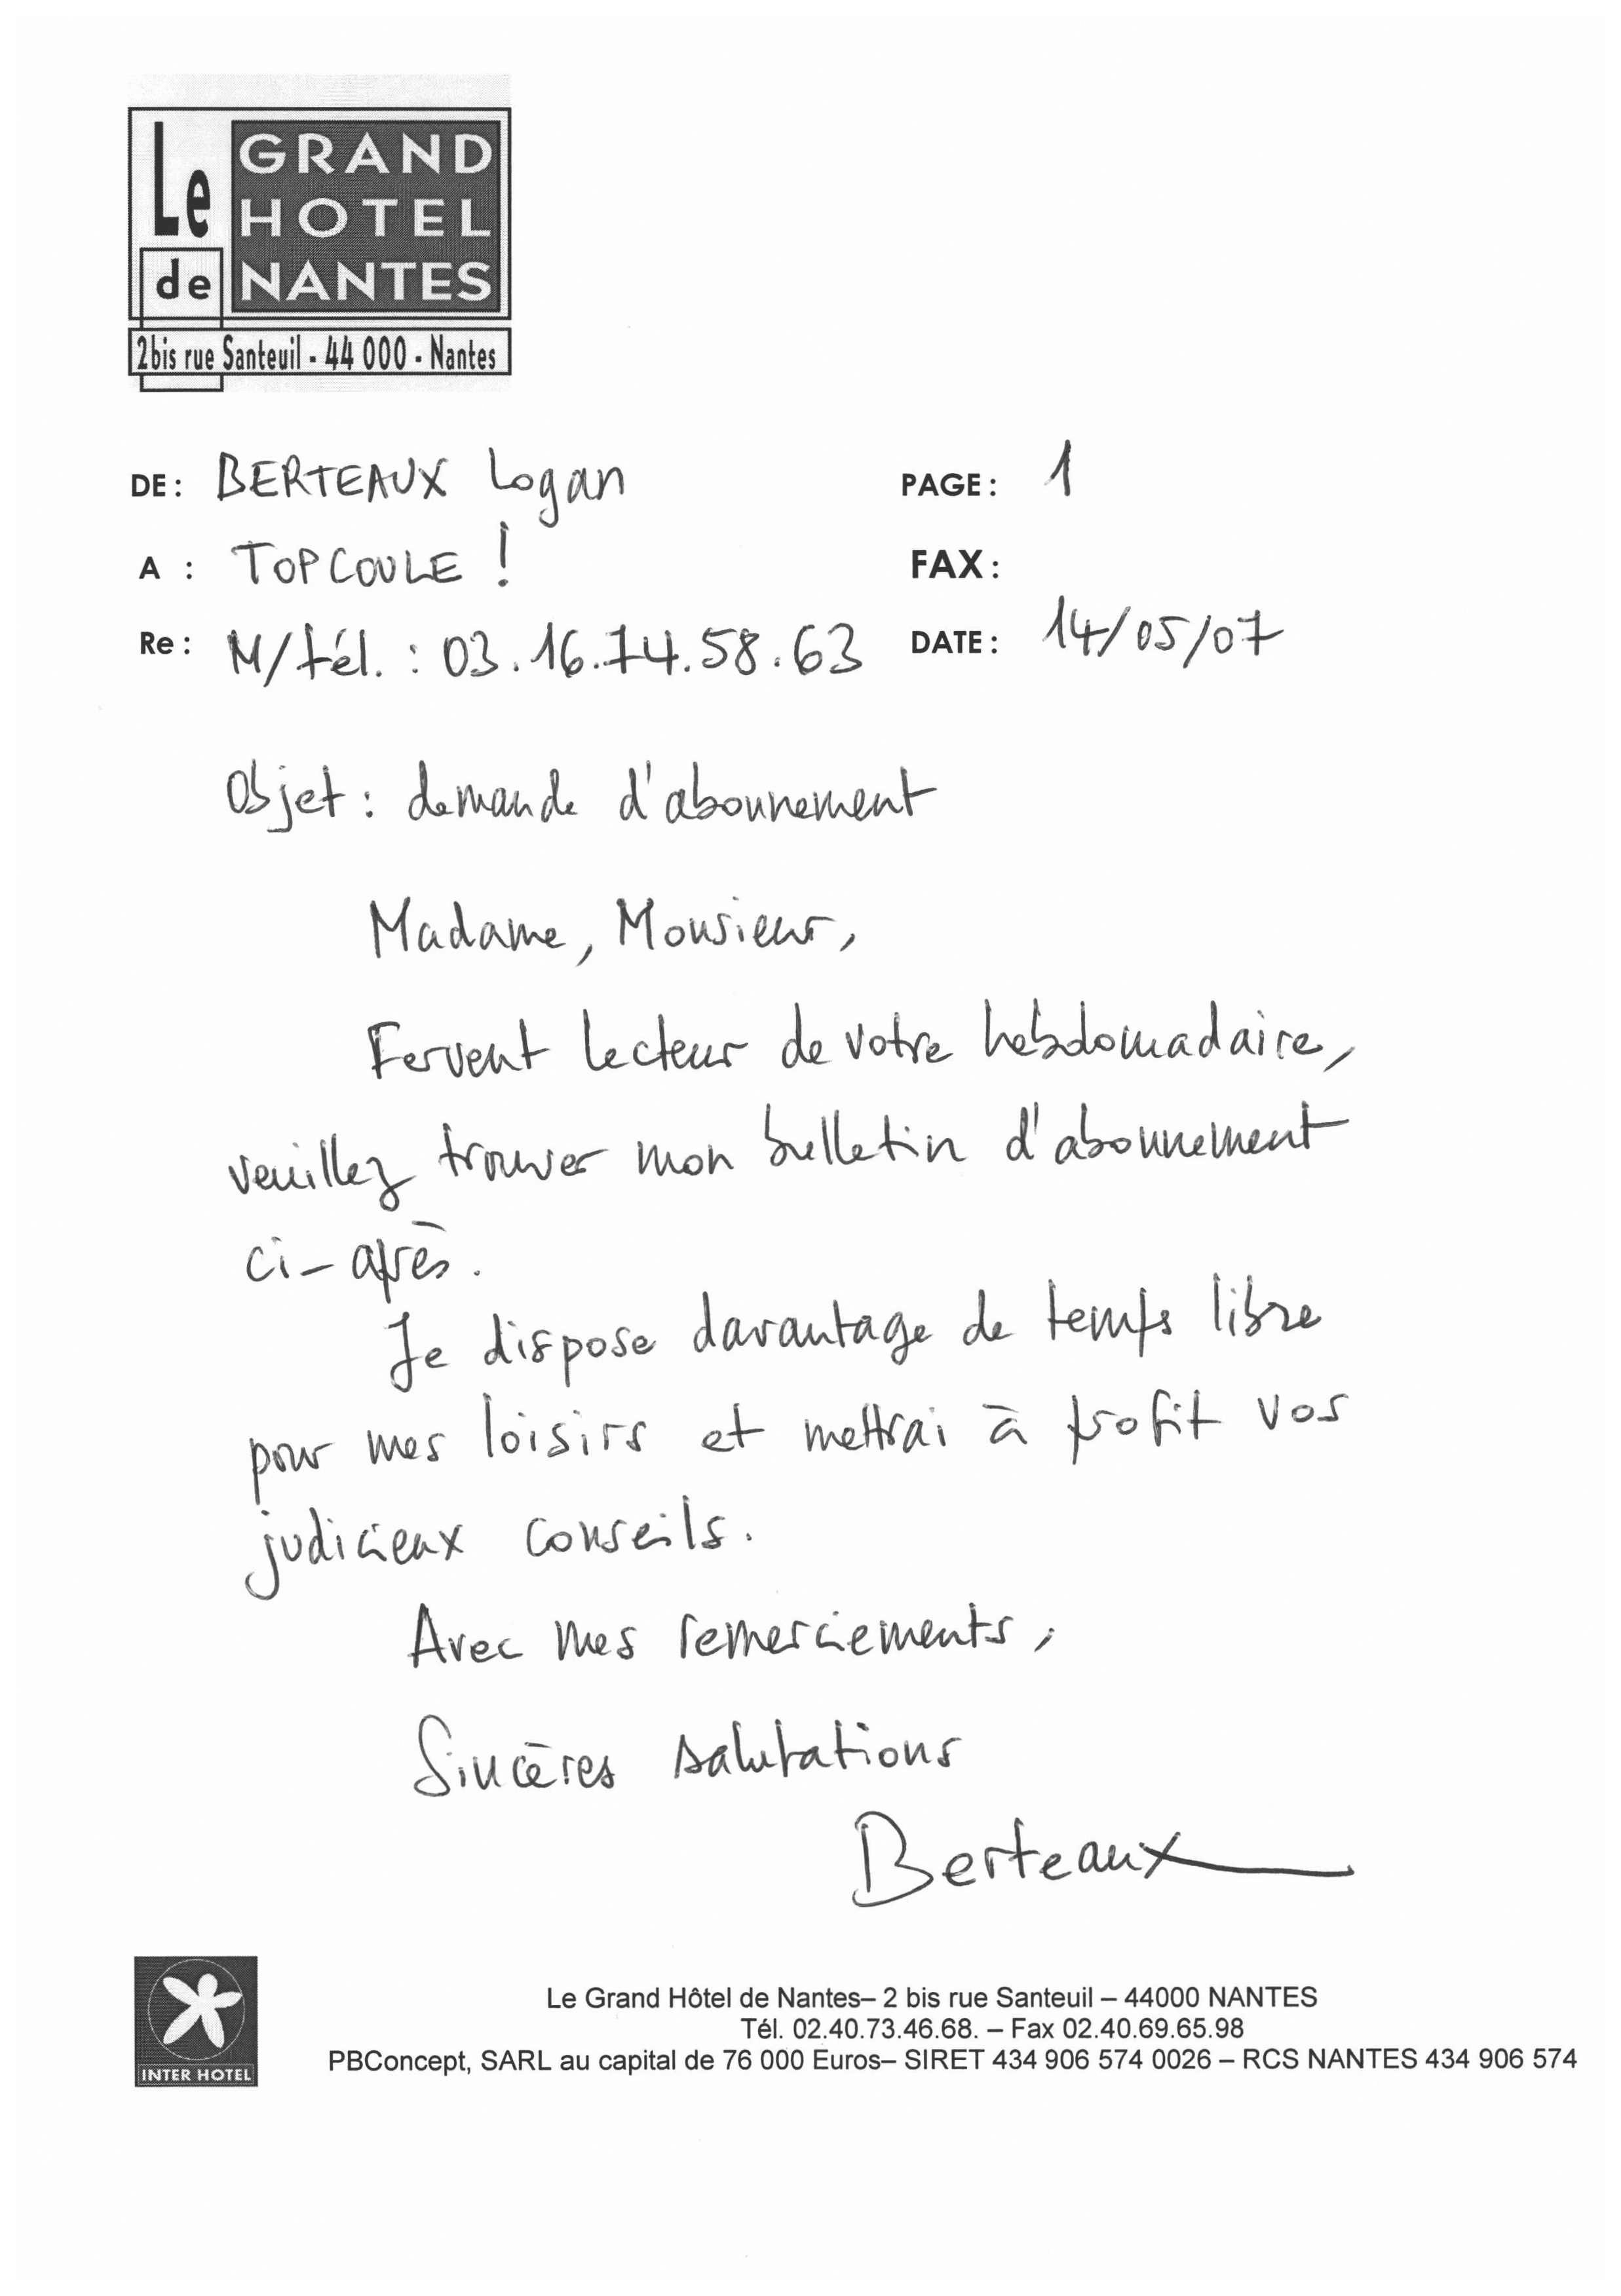 Le GRAND
HOTEL
de NANTES
2bis rue Santeuil - 44 000 - Nantes
DE : BERTEAUX Logan PAGE : 1
A : TOPCOULE ! FAX :
Re : M/tél. : 03.16.74.58.63 DATE : 14/05/07
Objet : demande d'abonnement
Madame, Monsieur,
Fervent lecteur de votre hebdomadaire,
veuillez trouver mon bulletin d'abonnement
ci-après.
Je dispose davantage de temps libre
pour mes loisirs et mettrai à profit vos
judicieux conseils.
Avec mes remerciements,
Sincères salutations
Berteaux
INTER HOTEL
Le Grand Hôtel de Nantes– 2 bis rue Santeuil – 44000 NANTES
Tél. 02.40.73.46.68. – Fax 02.40.69.65.98
PBConcept, SARL au capital de 76 000 Euros– SIRET 434 906 574 0026 – RCS NANTES 434 906 574